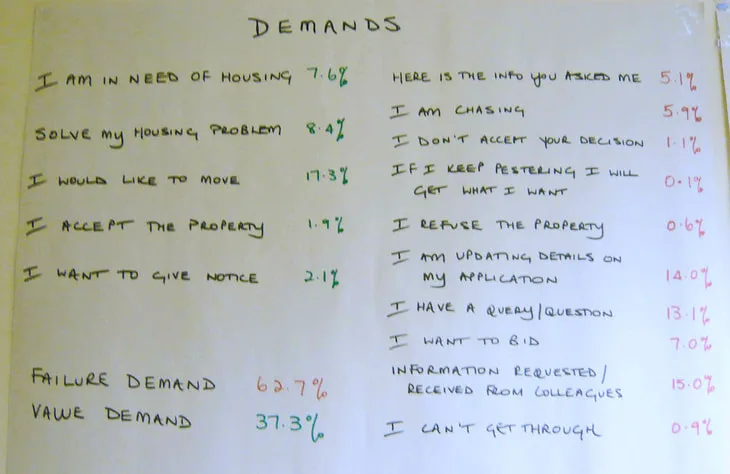 DEMANDS
I AM IN NEED OF HOUSING 7.6%
SOLVE MY HOUSING PROBLEM 8.4%
I WOULD LIKE TO MOVE 17.3%
I ACCEPT THE PROPERTY 1.9%
I WANT TO GIVE NOTICE 2.1%
FAILURE DEMAND 62.7%
VALUE DEMAND 37.3%
HERE IS THE INFO YOU ASKED ME 5.1%
I AM CHASING 5.9%
I DON'T ACCEPT YOUR DECISION 1.1%
IF I KEEP PESTERING I WILL
GET WHAT I WANT 0.1%
I REFUSE THE PROPERTY 0.6%
I AM UPDATING DETAILS ON
MY APPLICATION 14.0%
I HAVE A QUERY/QUESTION 13.1%
I WANT TO BID 7.0%
INFORMATION REQUESTED/
RECEIVED FROM COLLEAGUES 15.0%
I CAN'T GET THROUGH 0.9%